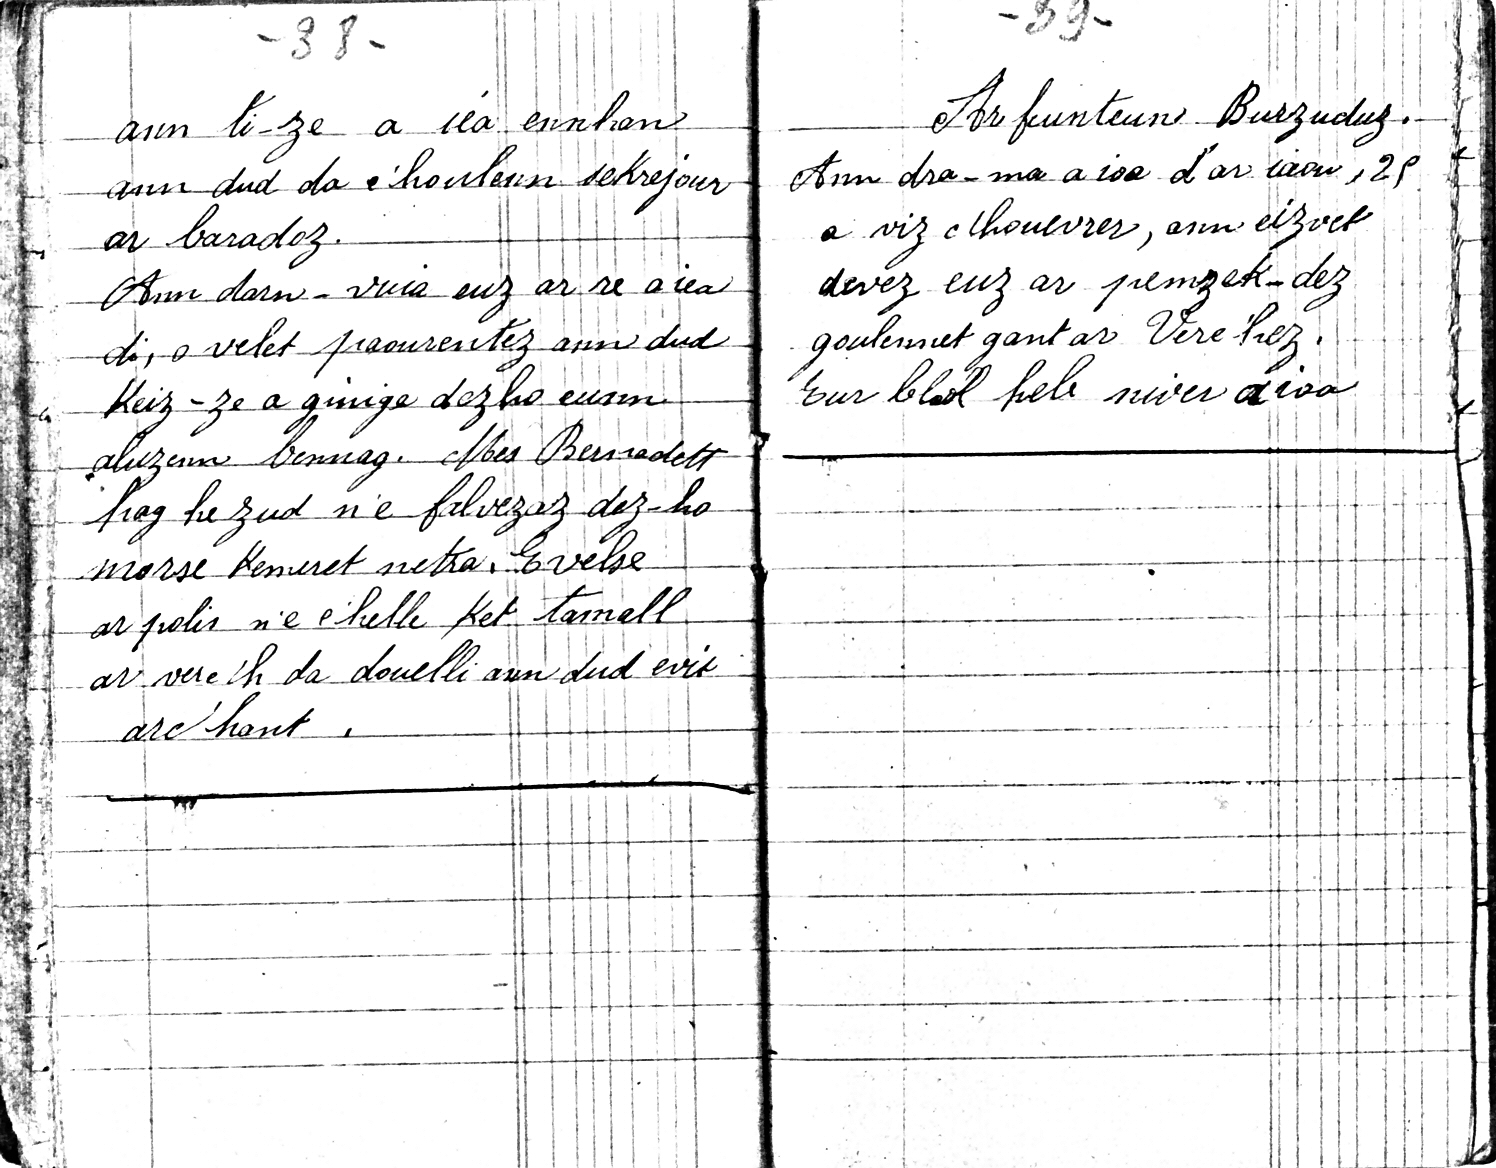 -38-
ann ti-ze a iéa ennhan
ann dud da c'houlenn sekrejour
ar baradoz.
Ann darn-vuia euz ar re a iea
di, o velet paourentez ann dud
Keiz-ze a ginige dezho eunn
aluzenn bennag. Mes Bernadett
hag he zud n'e falvezaz dez-ho
morse Kemeret netra. Evelse
ar polis n'e c'helle Ket tamall
ar verc'h da douelli ann dud evit
arc'hant.
-39-
Ar feunteun Burzuduz.
Ann dra-ma a ioa d'ar iaou, 25
a viz c'houevrer, ann eizvet
devez euz ar pemzek-dez
goulennet gant ar Verc'hez.
Eur bloll heb niver a ioa